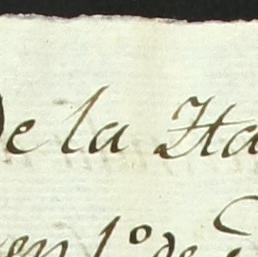 de la Ha
en 1º de